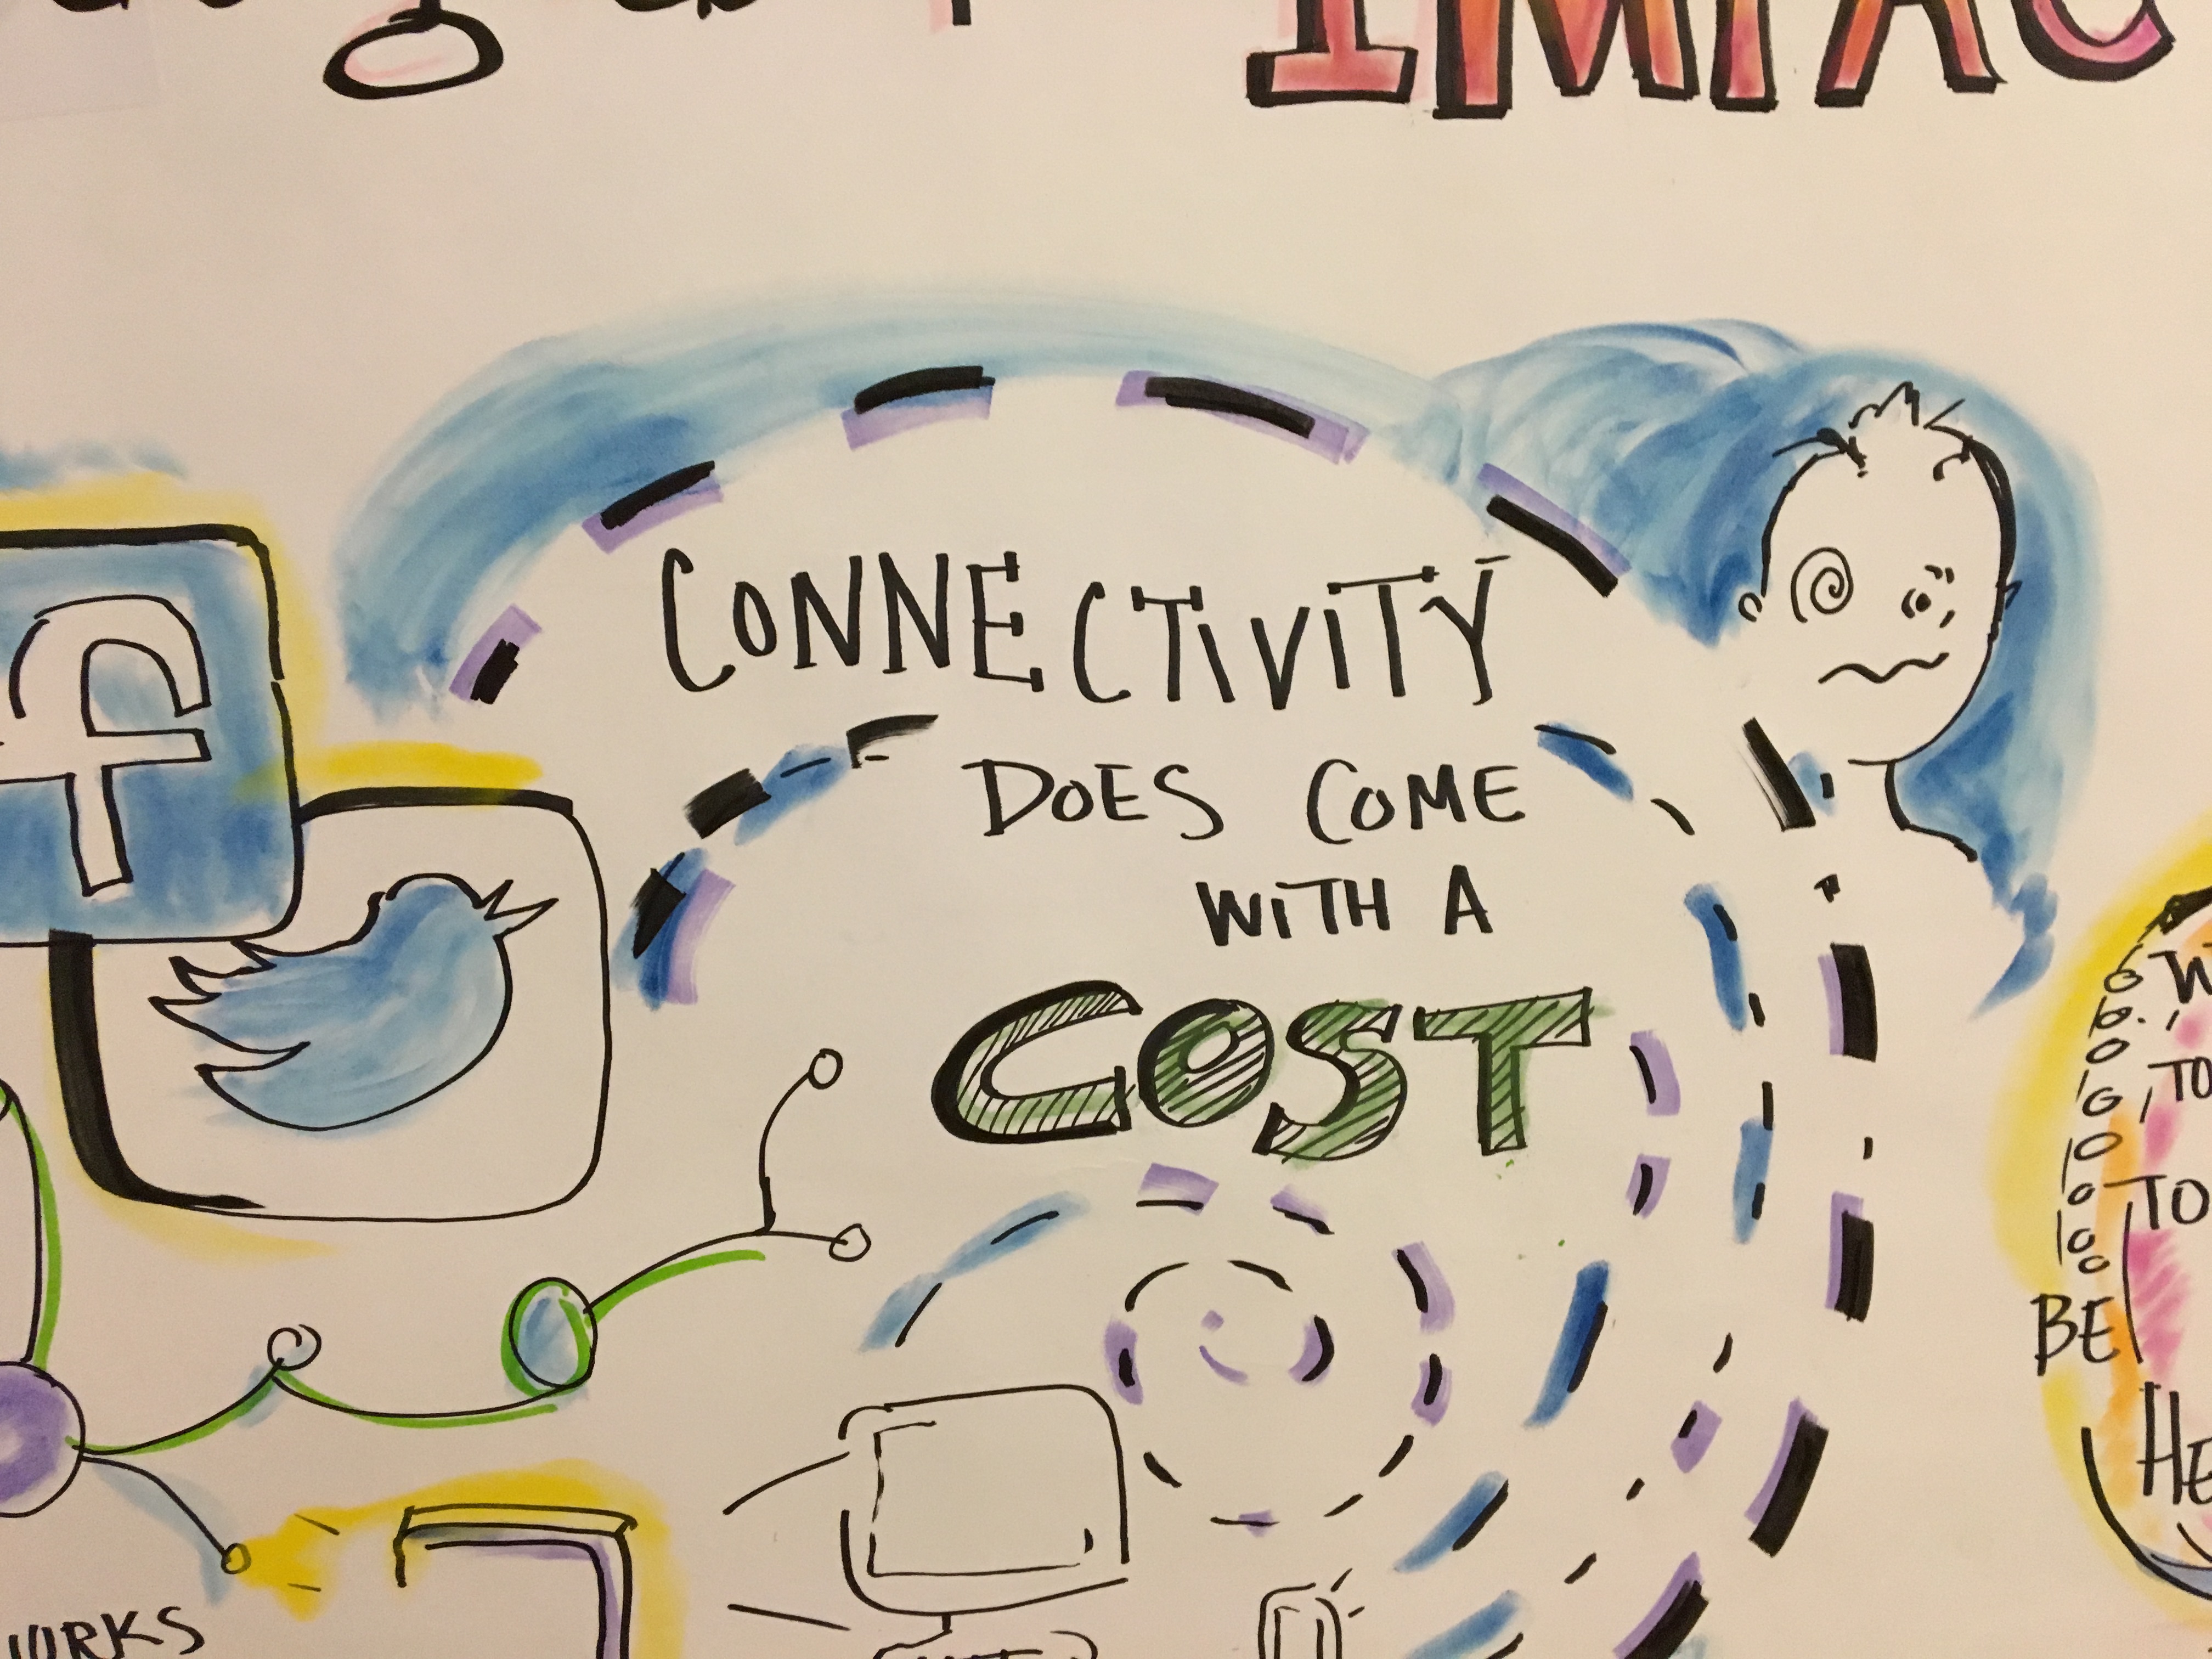 IMPAC
CONNECTIVITY
DOES COME
WITH A
COST
f
W
TO
TO
BE
HE